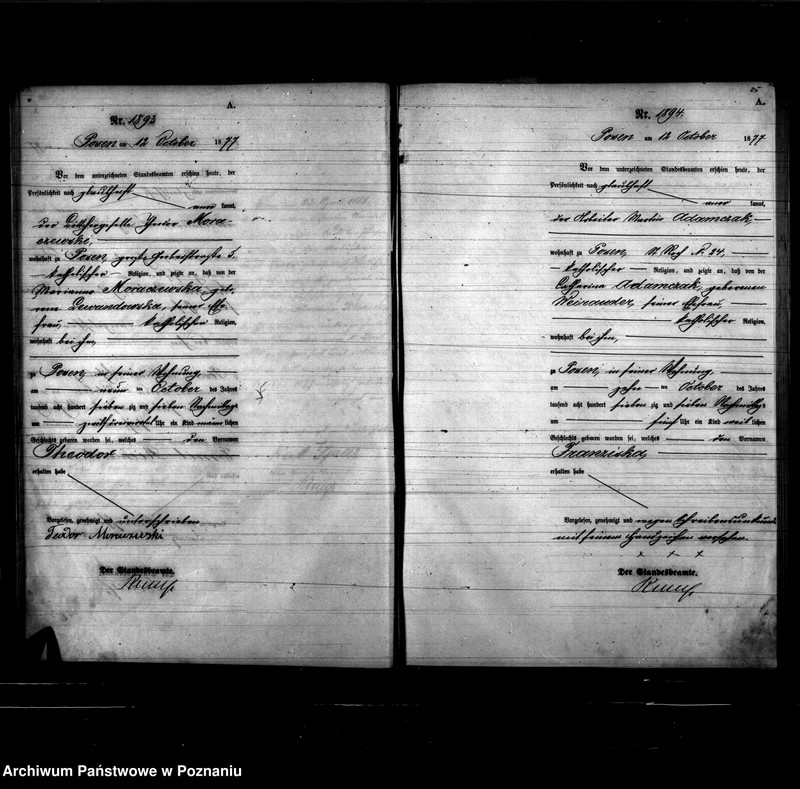 A.
Nr. 1893
Posen am 12 October 1877.
Vor dem unterzeichneten Standesbeamten erschien heute, der
Persönlichkeit nach glaubhaft
kannt,
der Theodor Mora-
czewski,
wohnhaft zu Posen, große Gerberstraße 5.
katholischer Religion, und zeigte an, daß von der
Marianna Moraczewska gebo-
Lewandowska, seiner Ehe-
frau, katholischer Religion,
wohnhaft bei ihm,
zu Posen, in seiner Wohnung,
am neun ten October des Jahres
tausend acht hundert sieben zig und sieben Nachmittags
um Uhr ein Kind männ lichen
Geschlechts geboren worden sei, welches den Vornamen
Theodor
erhalten habe
Vorgelesen, genehmigt und unterschrieben
Teodor Moraczewski
Der Standesbeamte.
A.
Nr. 1894.
Posen am 12 October 1877
Vor dem unterzeichneten Standesbeamten erschien heute, der
Persönlichkeit nach glaubhaft
kannt,
der Martin Adamczak,
wohnhaft zu Posen, 24,
katholischer Religion, und zeigte an, daß von der
Catharina Adamczak, geborenen
seiner Ehefrau,
katholischer Religion,
wohnhaft bei ihm,
zu Posen, in seiner Wohnung,
am zehn ten October des Jahres
tausend acht hundert sieben zig und sieben Nachmittags
um fünf Uhr ein Kind weib lichen
Geschlechts geboren worden sei, welches den Vornamen
Franziska,
erhalten habe
Vorgelesen, genehmigt und wegen Schreibensunkunde
mit seinem Handzeichen versehen.
x + x
Der Standesbeamte.
Archiwum Państwowe w Poznaniu